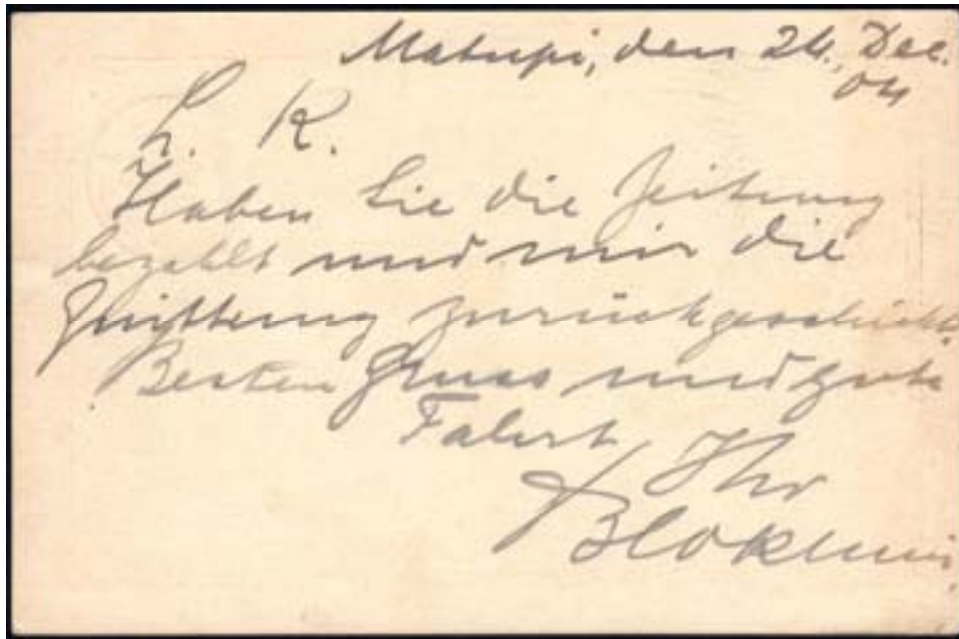 Matupi, den 24. Dec.
04
L. K.
Haben Sie die Zeitung
bezahlt und mir die
Quittung zurückgeschickt.
Besten Gruss und gute
Fahrt, Ihr